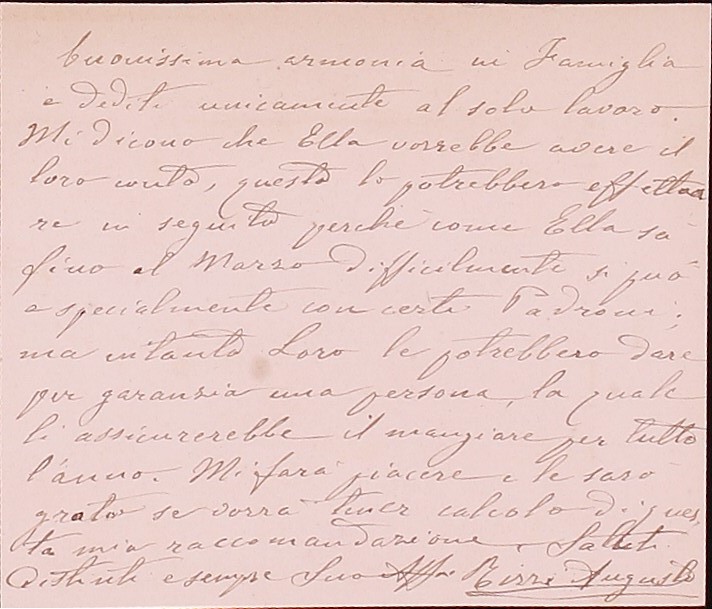 buonissima armonia in Famiglia
e dediti unicamente al solo lavoro.
Mi dicono che Ella vorrebbe avere il
loro conto, questo lo potrebbero effettua
re in seguito perché come Ella sà
fino al Marzo difficilmente si può
e specialmente con certi Padroni;
ma intanto Loro le potrebbero dare
per garanzia una persona, la quale
li assicurerebbe il mangiare per tutto
l'anno. Mi farà piacere e le sarò
grato se vorrà tener calcolo di ques
ta mia raccomandazione. Saluti
distinti e sempre Suo Affo Rizzi Augusto